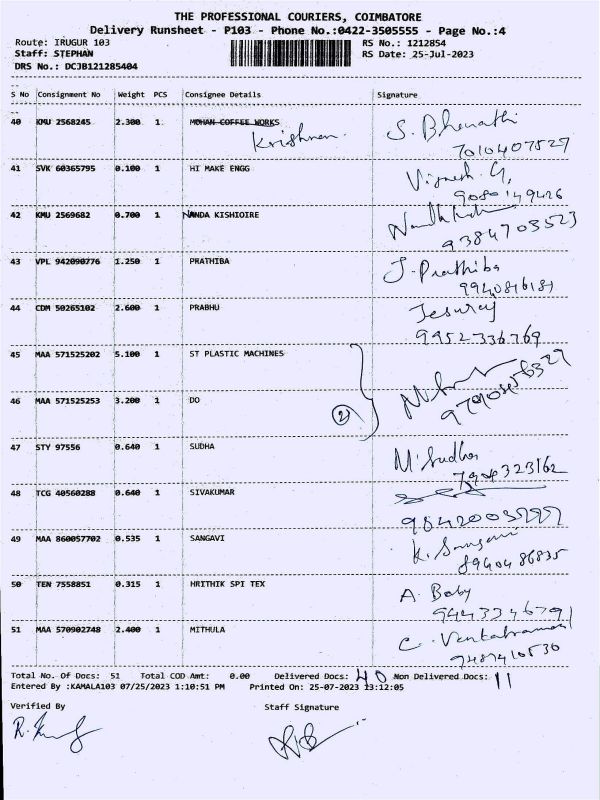 THE PROFESSIONAL COURIERS, COIMBATORE
Delivery Runsheet - P103 - Phone No.:0422-3505555 - Page No.:4
Route: IRUGUR 103 RS No.: 1212854
Staff: STEPHAN RS Date: 25-Jul-2023
DRS No.: DCJB121285404
S No Consignment No Weight PCS Consignee Details Signature
40 KMU 2568245 2.300 1 MOHAN COFFEE WORKS S. Bharathi
Krishnan 7010407527
41 SVK 60365795 0.100 1 HI MAKE ENGG Vignesh. G,
9080149426
42 KMU 2569682 0.700 1 NANDA KISHIOIRE
9384703523
43 VPL 942090776 1.250 1 PRATHIBA J. Prathiba
9940816181
44 CDM 50265102 2.600 1 PRABHU Jesuraj
9952336769
45 MAA 571525202 5.100 1 ST PLASTIC MACHINES
46 MAA 571525253 3.200 1 DO 2
47 STY 97556 0.640 1 SUDHA M. Sudha
7904323162
48 TCG 40560288 0.640 1 SIVAKUMAR
49 MAA 860057702 0.535 1 SANGAVI K. Sangavi
8940486835
50 TEN 7558851 0.315 1 HRITHIK SPI TEX A. Baby
9443346791
51 MAA 570902748 2.400 1 MITHULA C. Venkatraman
9489410530
Total No. Of Docs: 51 Total COD Amt: 0.00 Delivered Docs: 40 Non Delivered Docs: 11
Entered By :KAMALA103 07/25/2023 1:10:51 PM Printed On: 25-07-2023 13:12:05
Verified By Staff Signature